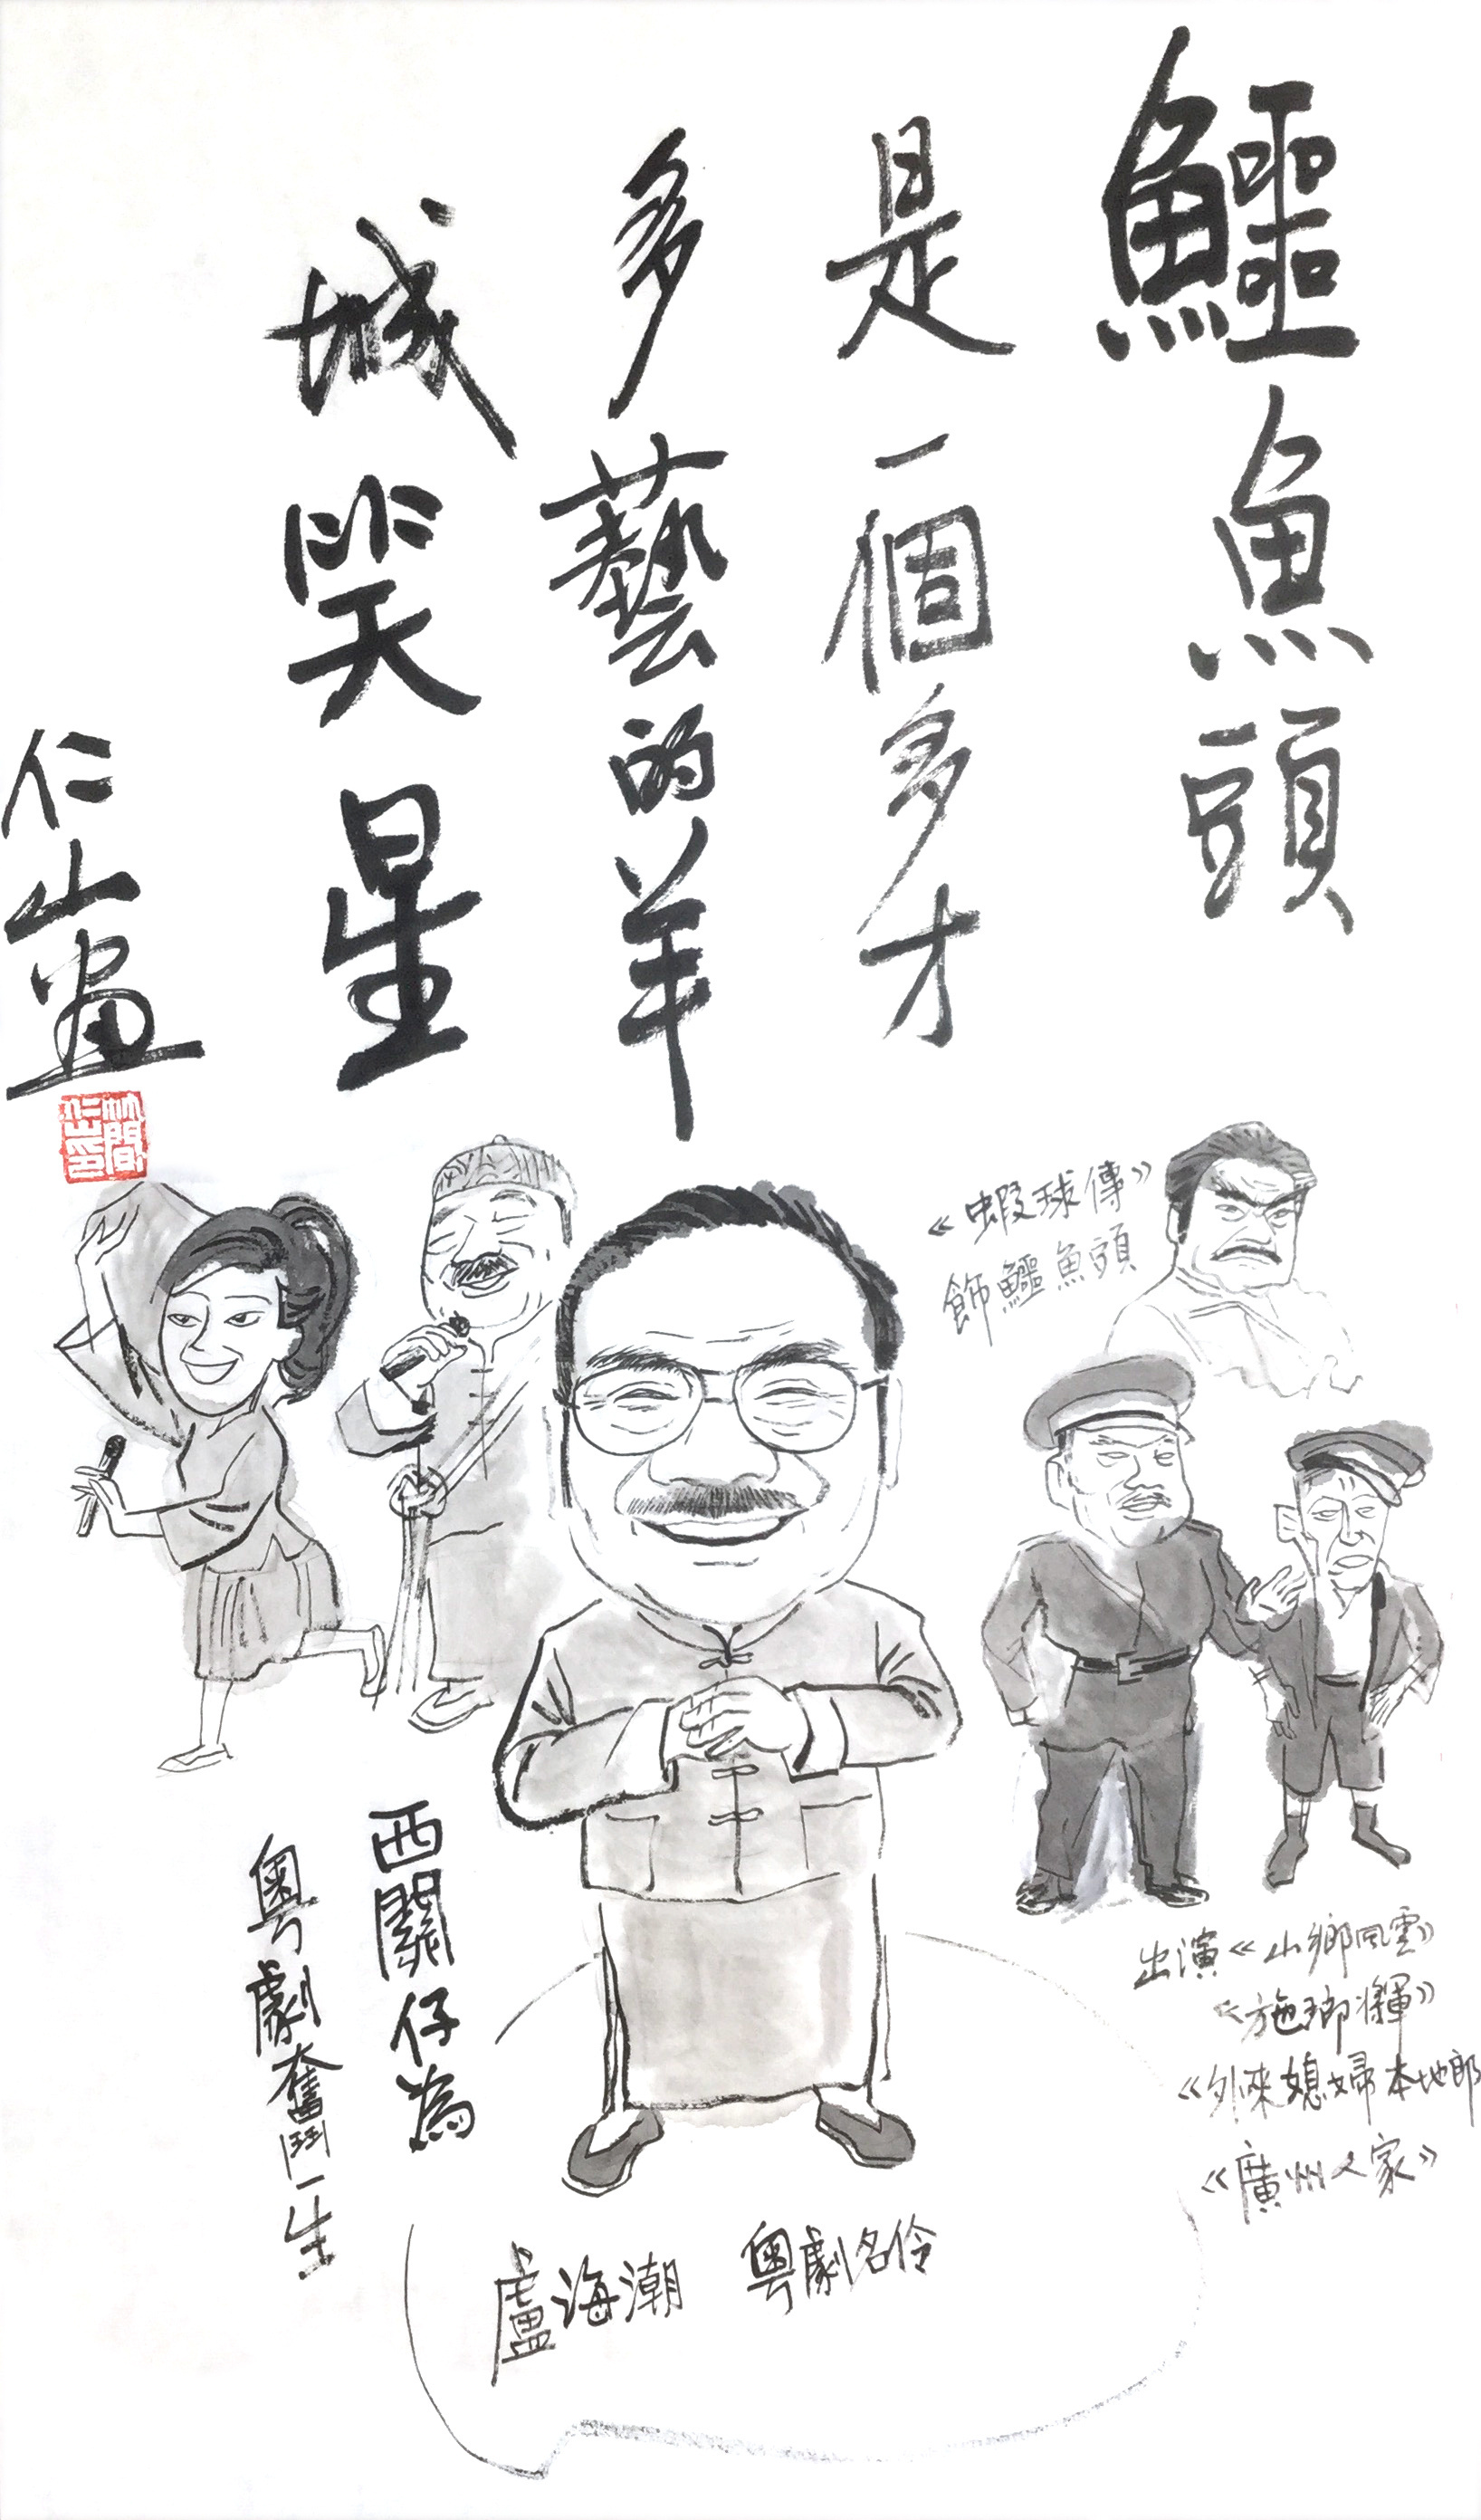 鱷魚頭
是一個多才
多藝的羊
城笑星
仁山畫
竹間
仁山印
《蝦球傳》
飾鱷魚頭
出演《山鄉風雲》
《施瑯將軍》
《外來媳婦本地郎
《廣州人家》
西關仔為
粵劇奮鬥一生
盧海潮 粵劇名伶